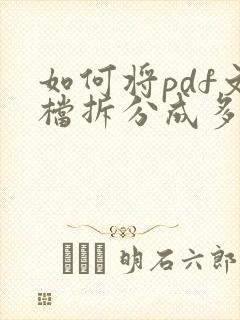 如何将pdf文
档拆分成多
明石六郎